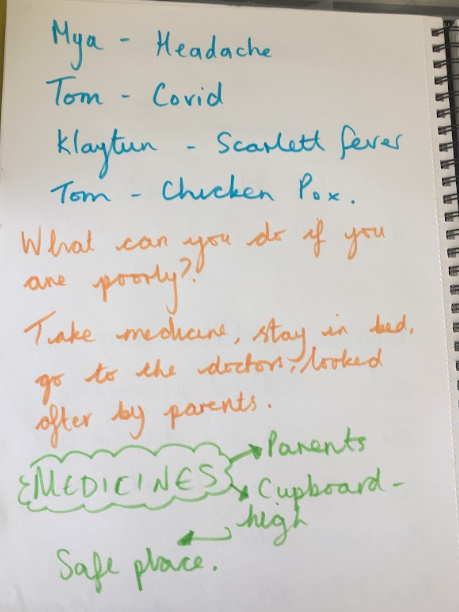 Mya - Headache
Tom - Covid
Klaytun - Scarlett fever
Tom - Chicken Pox.
What can you do if you
are poorly?
Take medicine, stay in bed,
go to the doctors, looked
after by parents.
MEDICINES
Parents
Cupboard -
high
Safe place.